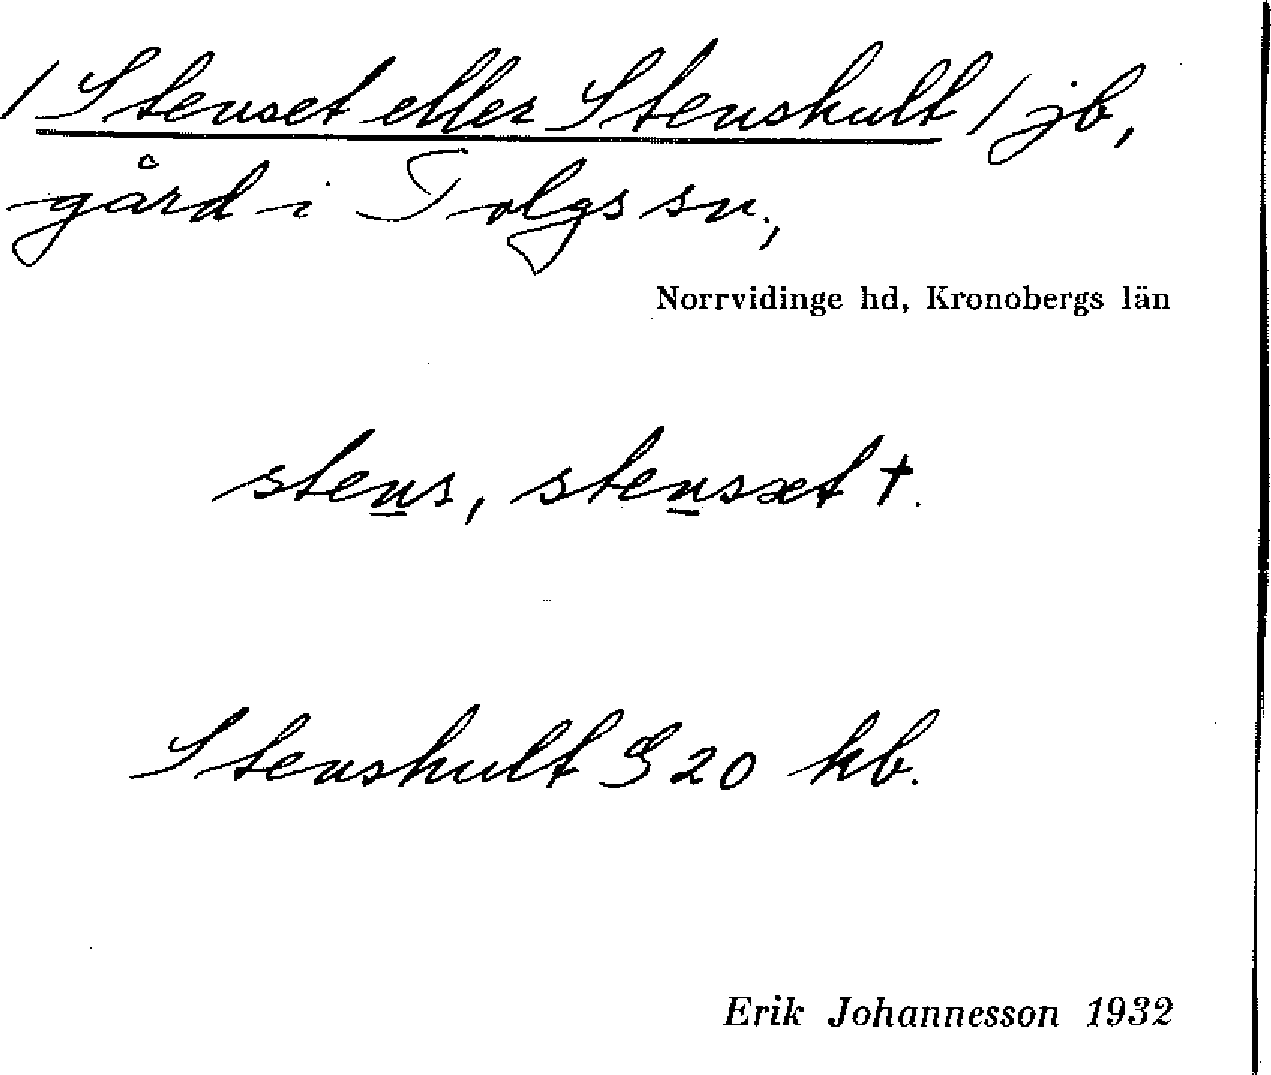 / Stenset eller Stenshult / jb,
gård i Tolgs sn,
Norrvidinge hd, Kronobergs län
stens, stensæt †.
Stenshult S 20 kb.
Erik Johannesson 1932